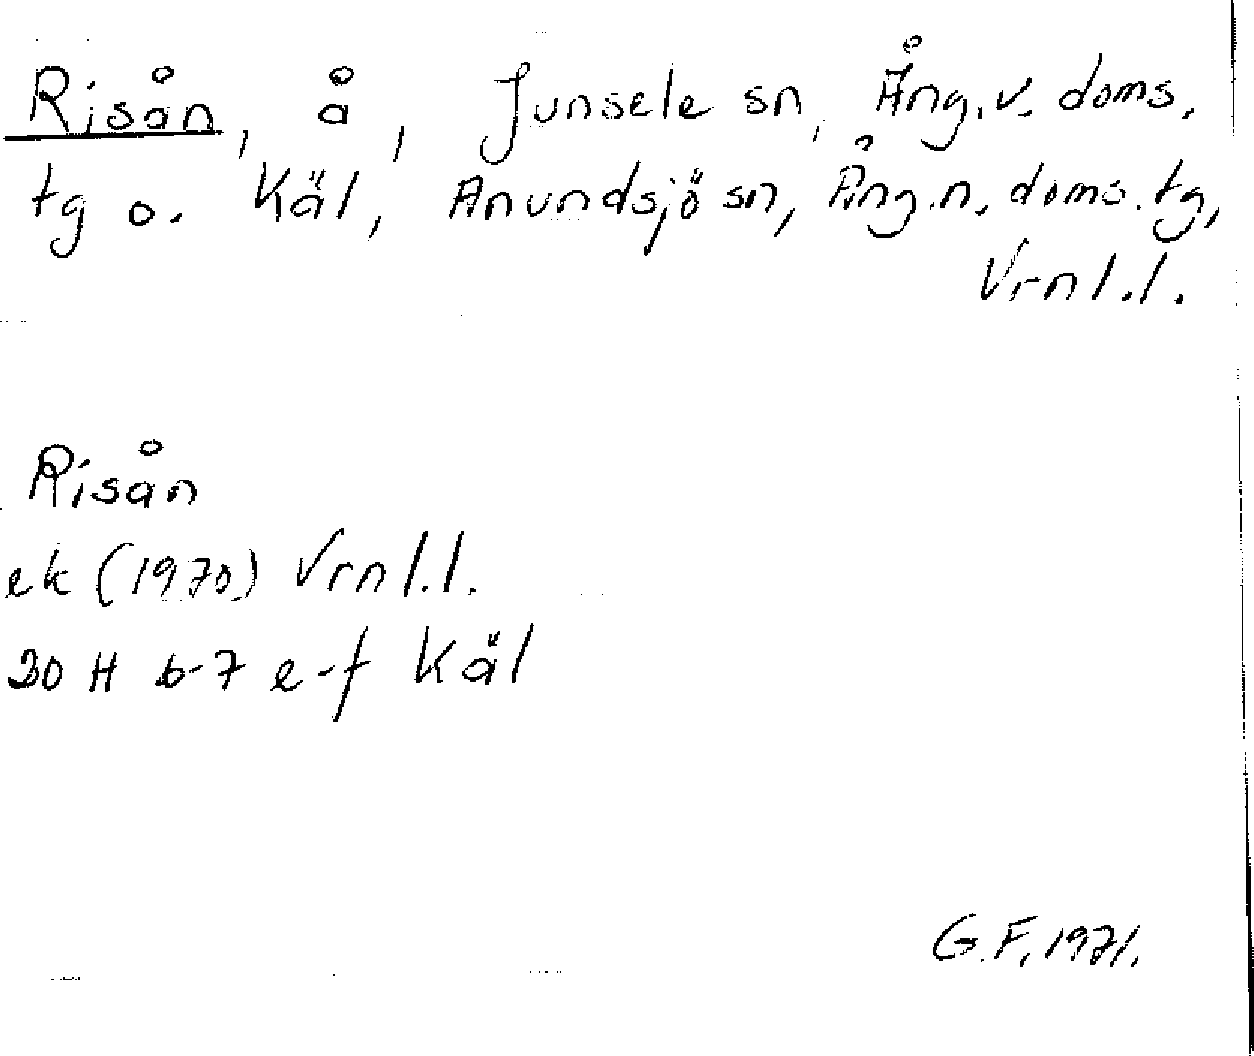 Risån, å, Junsele sn, Ång. v. doms.
tg o. Käl, Anundsjö sn, Ång. n. doms. tg,
Vrnl.l.
Risån
ek (1970) Vrnl.l.
20 H 6-7 e-f Käl
G.F. 1971.